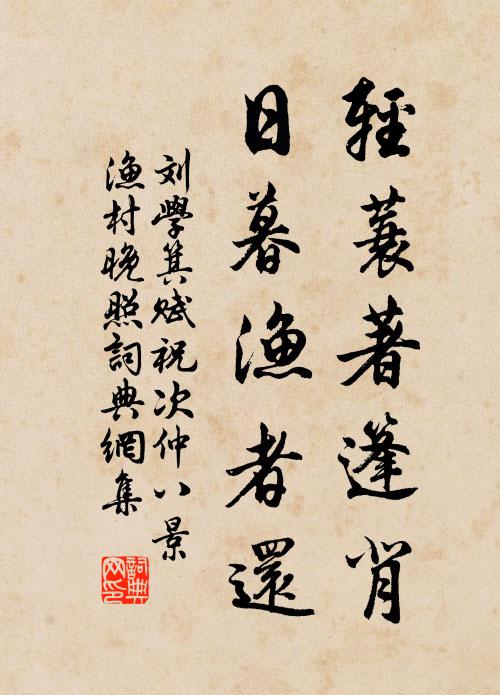 輕蓑著篷背
日暮漁者還
刘學箕賦祝次仲八景
漁村晚照詞典網集
詞典
网印